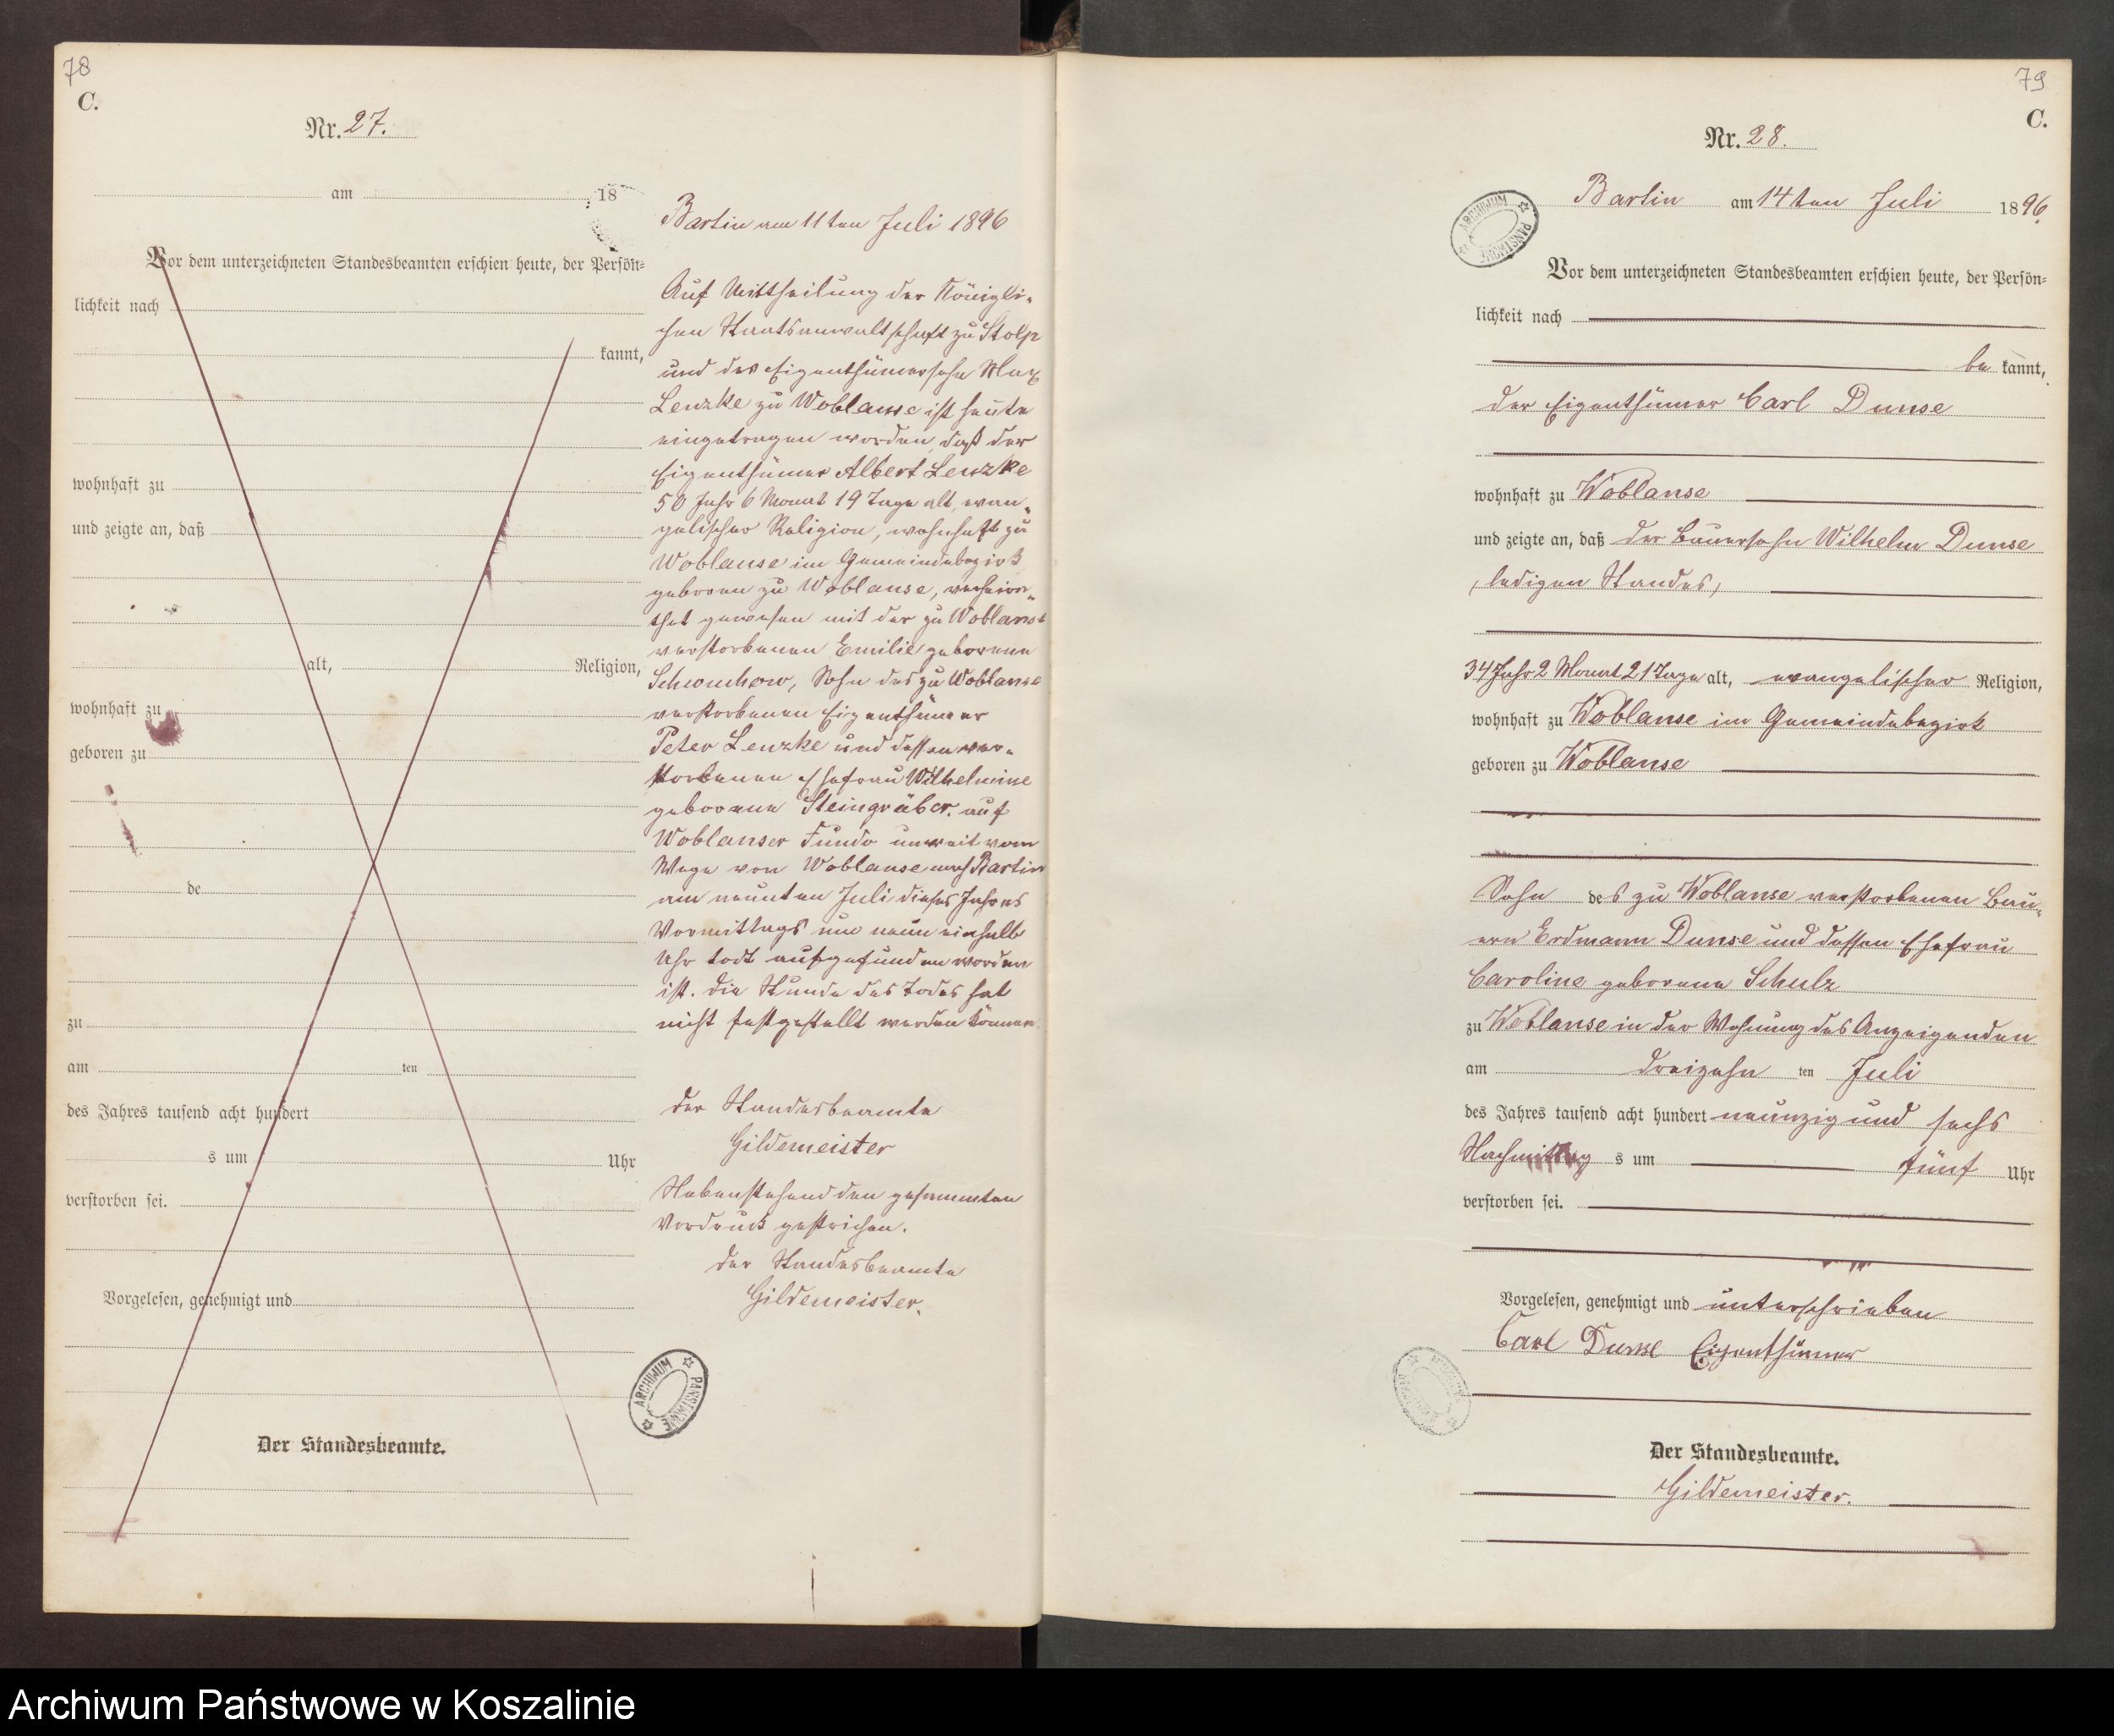 78
C.
Nr. 27.
am 18
Vor dem unterzeichneten Standesbeamten erschien heute, der Persön-
lichkeit nach
kannt,
wohnhaft zu
und zeigte an, daß
alt, Religion,
wohnhaft zu
geboren zu
de
zu
am ten
des Jahres tausend acht hundert
s um Uhr
verstorben sei.
Vorgelesen, genehmigt und
Der Standesbeamte.
Bartin am 11ten Juli 1896
Auf Mittheilung der Königli-
chen Staatsanwaltschaft zu Stolp
und des Eigenthümersohn Max
Lenzke zu Woblanse ist heute
eingetragen worden, daß der
Eigenthümer Albert Lenzke
50 Jahr 6 Monat 19 Tage alt, evan-
gelischer Religion, wohnhaft zu
Woblanse im Gemeindebezirk
geboren zu Woblanse, verheira-
thet gewesen mit der zu Woblanse
verstorbenen Emilie geborene
Schwuchow, Sohn des zu Woblanse
verstorbenen Eigenthümer
Peter Lenzke und dessen ver-
storbenen Ehefrau Wilhelmine
geborene Steingräber. auf
Woblanser Fundo unweit vom
Wege von Woblanse nach Bartin
am neunten Juli dieses Jahres
Vormittags um neun einhalb
Uhr todt aufgefunden worden
ist. Die Stunde des Todes hat
nicht festgestellt werden können.
Der Standesbeamte
Gildemeister
Nebenstehend den gesammten
Vordruck gestrichen.
Der Standesbeamte
Gildemeister.
ARCHIWUM PAŃSTWOWE
79
C.
Nr. 28.
ARCHIWUM PAŃSTWOWE
Bartin am 14ten Juli 1896.
Vor dem unterzeichneten Standesbeamten erschien heute, der Persön-
lichkeit nach
be kannt,
der Eigenthümer Carl Dunse
wohnhaft zu Woblanse
und zeigte an, daß der Bauersohn Wilhelm Dunse
, ledigen Standes,
34 Jahr 2 Monat 21 Tage alt, evangelischer Religion,
wohnhaft zu Woblanse im Gemeindebezirk
geboren zu Woblanse
Sohn des zu Woblanse verstorbenen Bau-
ern Erdmann Dunse und dessen Ehefrau
Caroline geborene Schulz
zu Woblanse in der Wohnung des Anzeigenden
am dreizehn ten Juli
des Jahres tausend acht hundert neunzig und sechs
Nachmittag s um fünf Uhr
verstorben sei.
Vorgelesen, genehmigt und unterschrieben
Carl Dunse Eigenthümer
Der Standesbeamte.
Gildemeister.
Archiwum Państwowe w Koszalinie